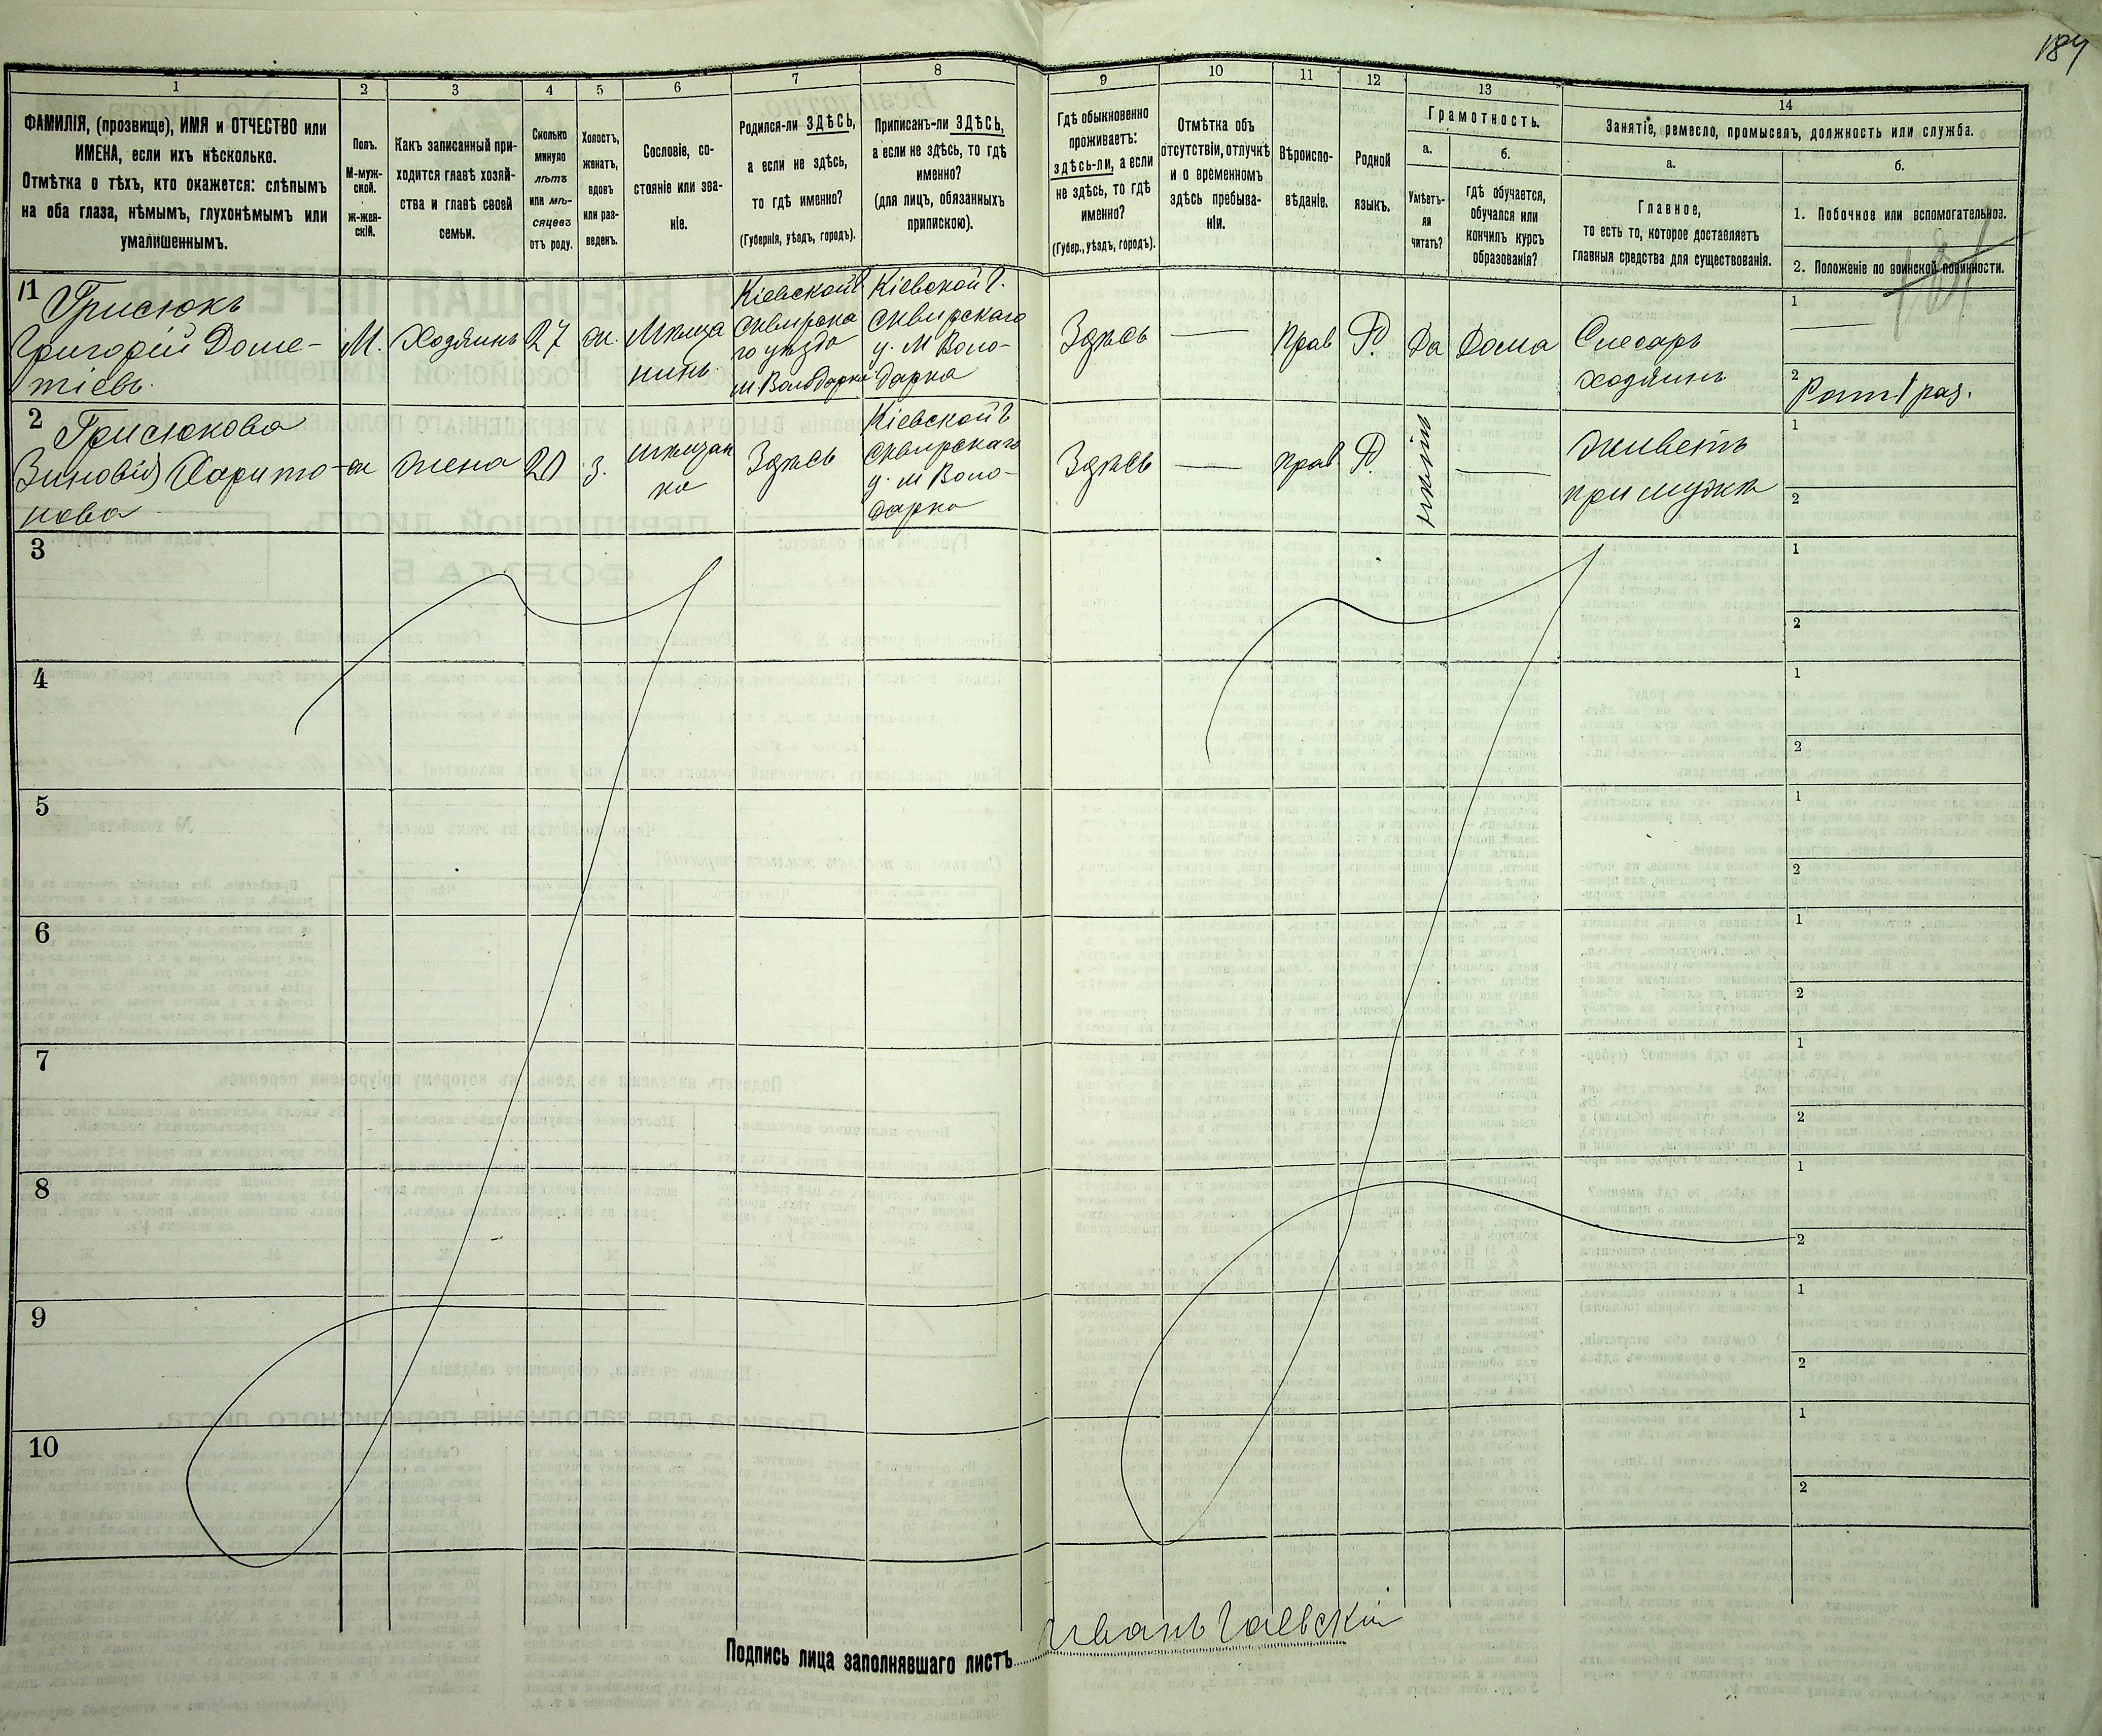 187
1
2
3
4
5
6
7
8
9
10
11
12
13
14
ФАМИЛІЯ, (прозвище), ИМЯ и ОТЧЕСТВО или
ИМЕНА, если ихъ нѣсколько.
Отмѣтка о тѣхъ, кто окажется: слѣпымъ
на оба глаза, нѣмымъ, глухонѣмымъ или
умалишеннымъ.
Полъ.
М-муж-
ской.
ж-жен-
скій.
Какъ записанный при-
ходится главѣ хозяй-
ства и главѣ своей
семьи.
Сколько
минуло
лѣтъ
или мѣ-
сяцевъ
отъ роду.
Холостъ,
женатъ,
вдовъ
или раз-
веденъ.
Сословіе, со-
стояніе или зва-
ніе.
Родился-ли ЗДѢСЬ,
а если не здѣсь,
то гдѣ именно?
(Губернія, уѣздъ, городъ).
Приписанъ-ли ЗДѢСЬ,
а если не здѣсь, то гдѣ
именно?
(для лицъ, обязанныхъ
припискою).
Гдѣ обыкновенно
проживаетъ:
здѣсь-ли, а если
не здѣсь, то гдѣ
именно?
(Губер., уѣздъ, городъ).
Отмѣтка объ
отсутствіи, отлучкѣ
и о временномъ
здѣсь пребыва-
ніи.
Вѣроиспо-
вѣданіе.
Родной
языкъ.
Грамотность.
а.
Умѣетъ-
ли
читать?
б.
гдѣ обучается,
обучался или
кончилъ курсъ
образованія?
Занятіе, ремесло, промыселъ, должность или служба.
а.
Главное,
то есть то, которое доставляетъ
главныя средства для существованія.
б.
1. Побочное или вспомогательное.
2. Положеніе по воинской повинности.
1
Грисюкъ
Григорій Доме-
тіевъ
М.
Хозяинъ
27
ж.
Мѣща
нинъ
Кіевской г.
Сквирска
го уѣзда
м. Володарка
Кіевской г.
Сквирскаго
у. М Воло-
дарка
Здѣсь
Прав
Р.
да
дома
Слесарь
хозяинъ
1
2
Рат 1 раз.
2
Грисюкова
Зиновія Харито-
нова
ж
жена
20
з.
мѣщан
ка
Здѣсь
Кіевской г
Сквирскаго
у. м Воло-
дарка
Здѣсь
прав
Р.
нѣтъ
живетъ
при мужѣ
1
2
3
1
2
4
1
2
5
1
2
6
1
2
7
1
2
8
1
2
9
1
2
10
1
2
Подпись лица заполнявшаго листъ
Иванъ Гаевскій